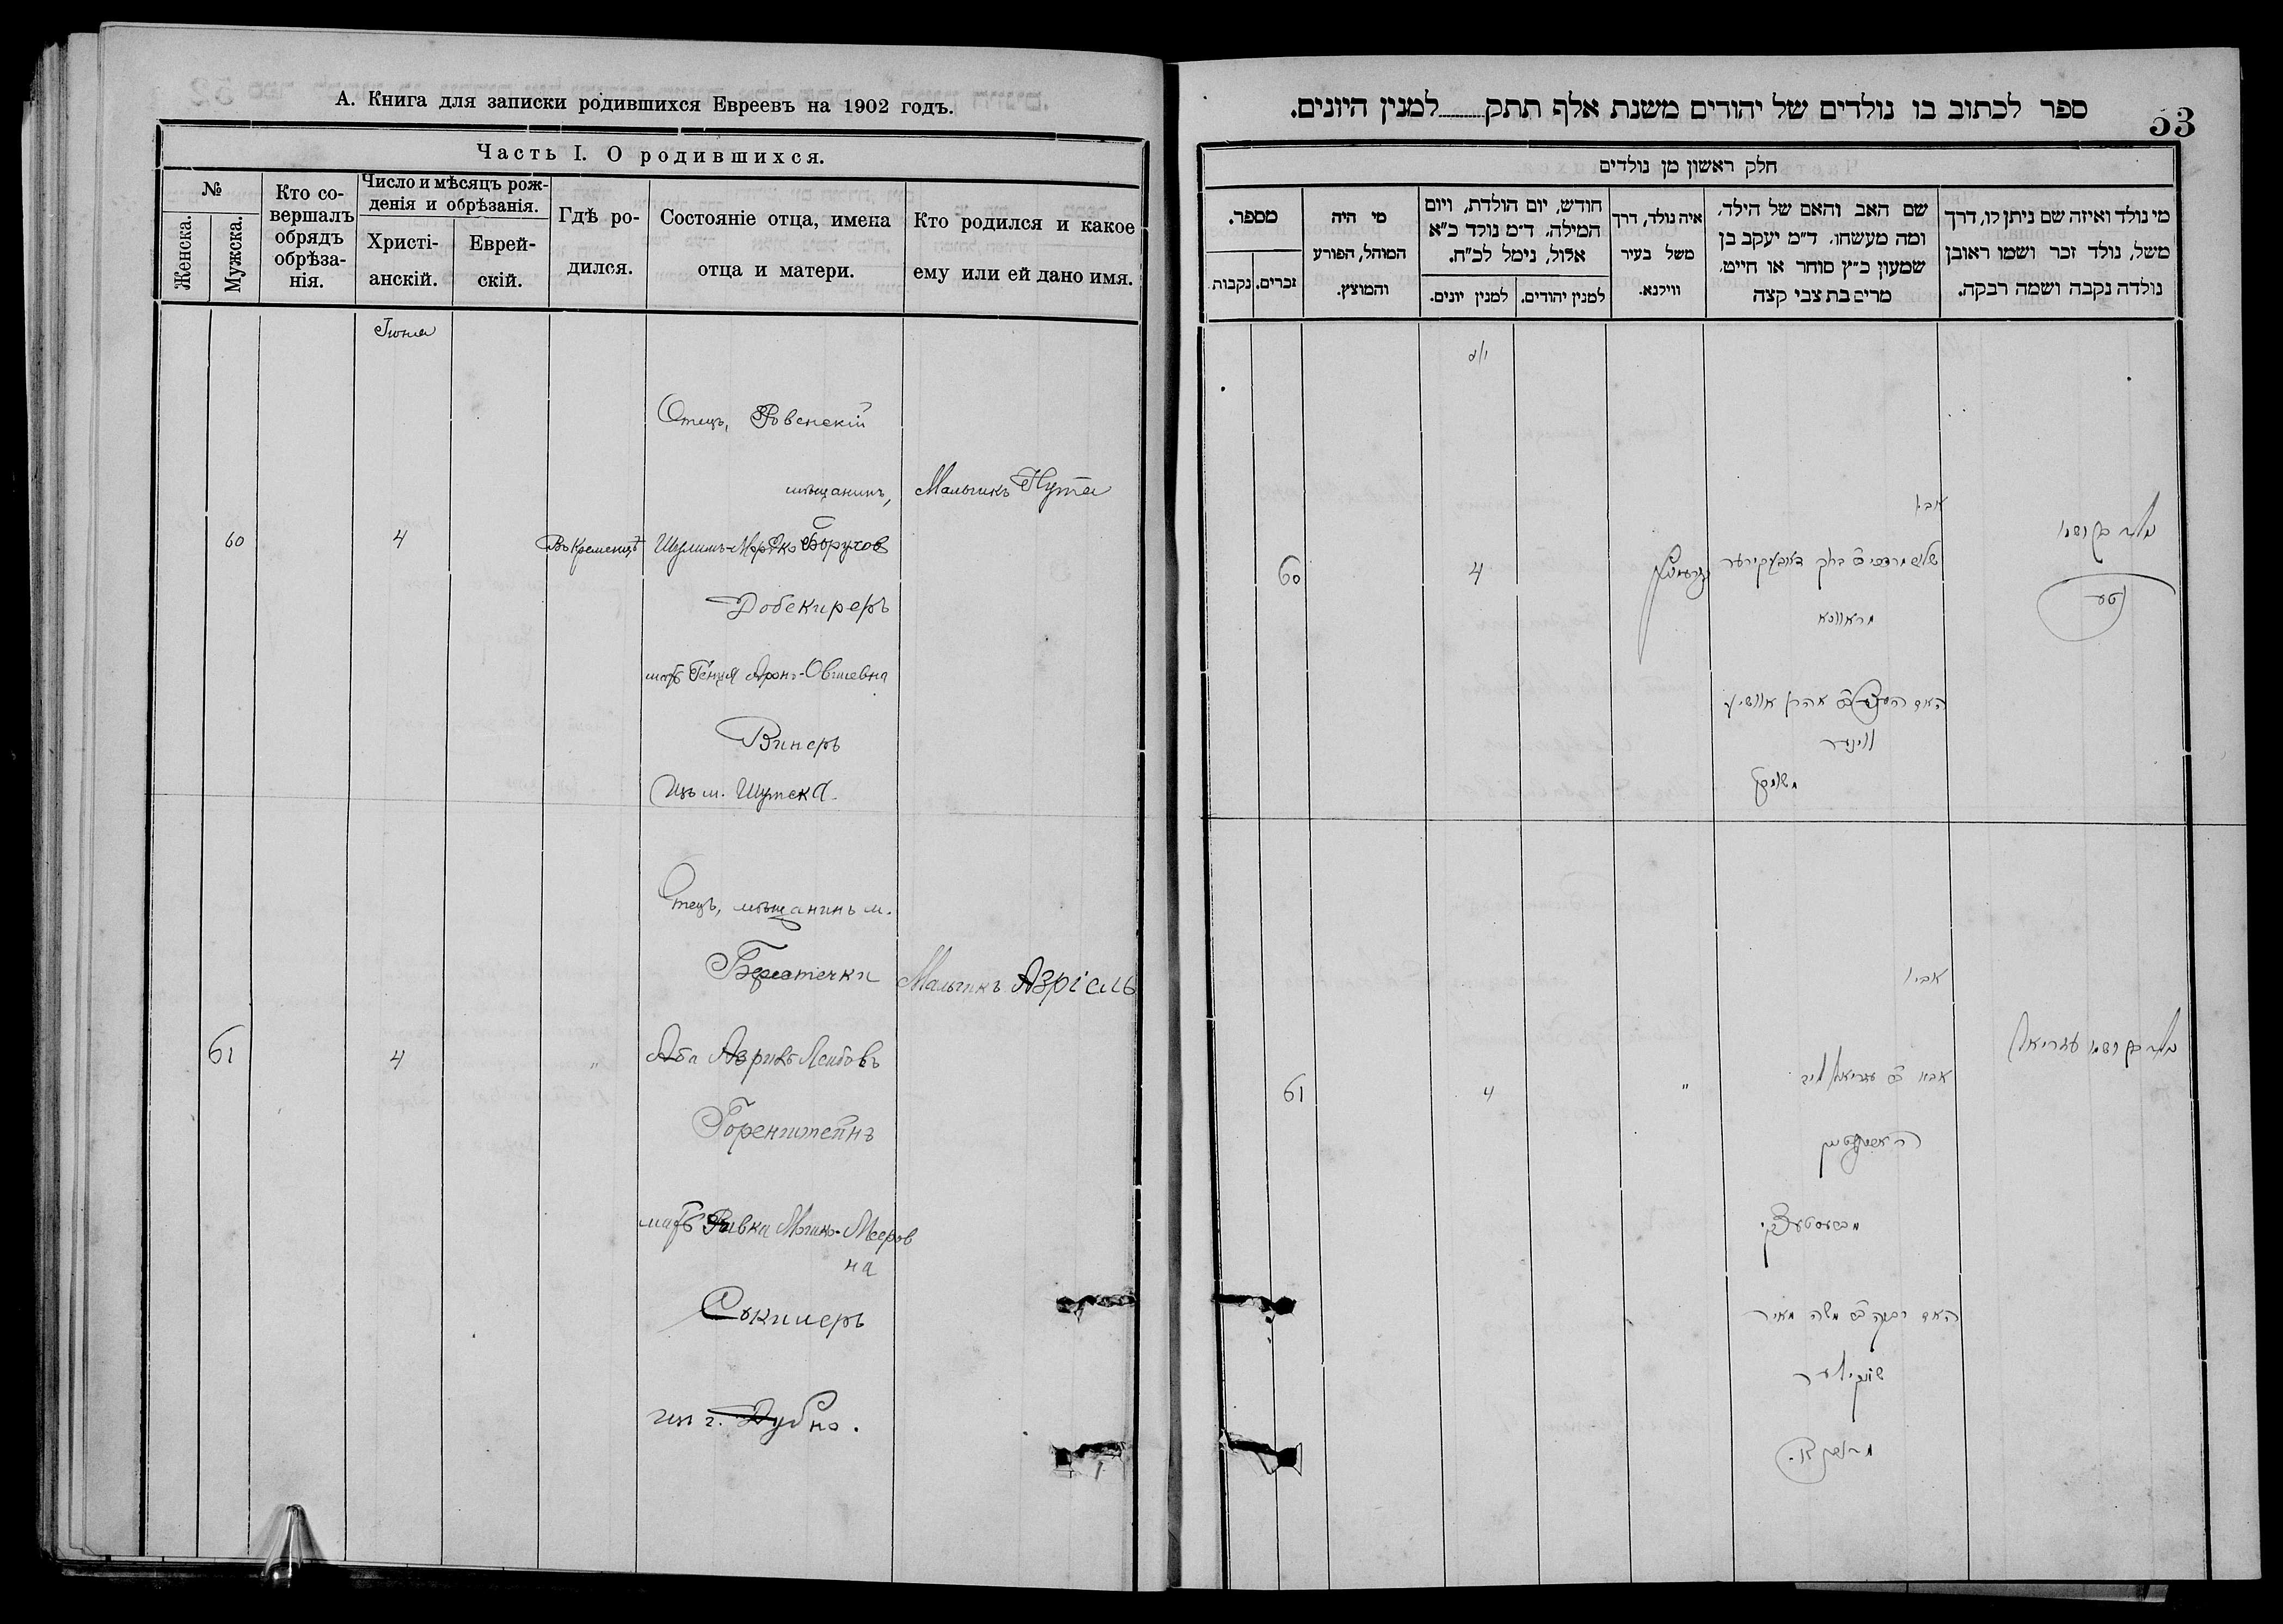 А. Книга для записки родившихся Евреевъ на 1902 годъ.
Часть I. О родившихся.
№
Женска.
Мужска.
Кто со-
вершалъ
обрядъ
обрѣза-
нія.
Число и мѣсяцъ рож-
денія и обрѣзанія.
Христі-
анскій.
Еврей-
скій.
Гдѣ ро-
дился.
Состояніе отца, имена
отца и матери.
Кто родился и какое
ему или ей дано имя.
Іюня
Отецъ, Ровенскій
мѣщанинъ,
Мальчикъ Нута
60
4
Въ Кременцѣ
Шулимъ-Мордко Борухов
Добекиреръ
мать Генця Аронъ-Овшиевна
Винеръ
Изъ м. Шумска.
Отецъ, мѣщанинъ м.
Берестечки
Мальчикъ Азріель
61
4
"
Аба Азрилъ Лейбовъ
Горенштейнъ
мать Ривка Мошко-Мееров
на
Сокилеръ
изъ г. Дубно.
53
ספר לכתוב בו נולדים של יהודים משנת אלף תתק......למנין היונים.
חלק ראשון מן נולדים
מי נולד ואיזה שם ניתן לו, דרך
משל, נולד זכר ושמו ראובן
נולדה נקבה ושמה רבקה.
שם האב והאם של הילד,
ומה מעשהו. ד"מ יעקב בן
שמעון כ"ץ סוחר או חייט,
מרים בת צבי קצה
איה נולד, דרך
משל בעיר
ווילנא.
חודש, יום הולדת, ויום
המילה. ד"מ נולד כ"א
אלול, נימל לכ"ח.
למנין יהודים.
למנין יונים.
מי היה
המוהל, הפורע
והמוצץ.
מספר.
זכרים.
נקבות
אביו
60
4
נטע
מראוונא
ווינער
משומסק
אביו
61
4
"
נולד בן ושמו עזריאל
האם רבקה בת משה מאיר
סוקילער